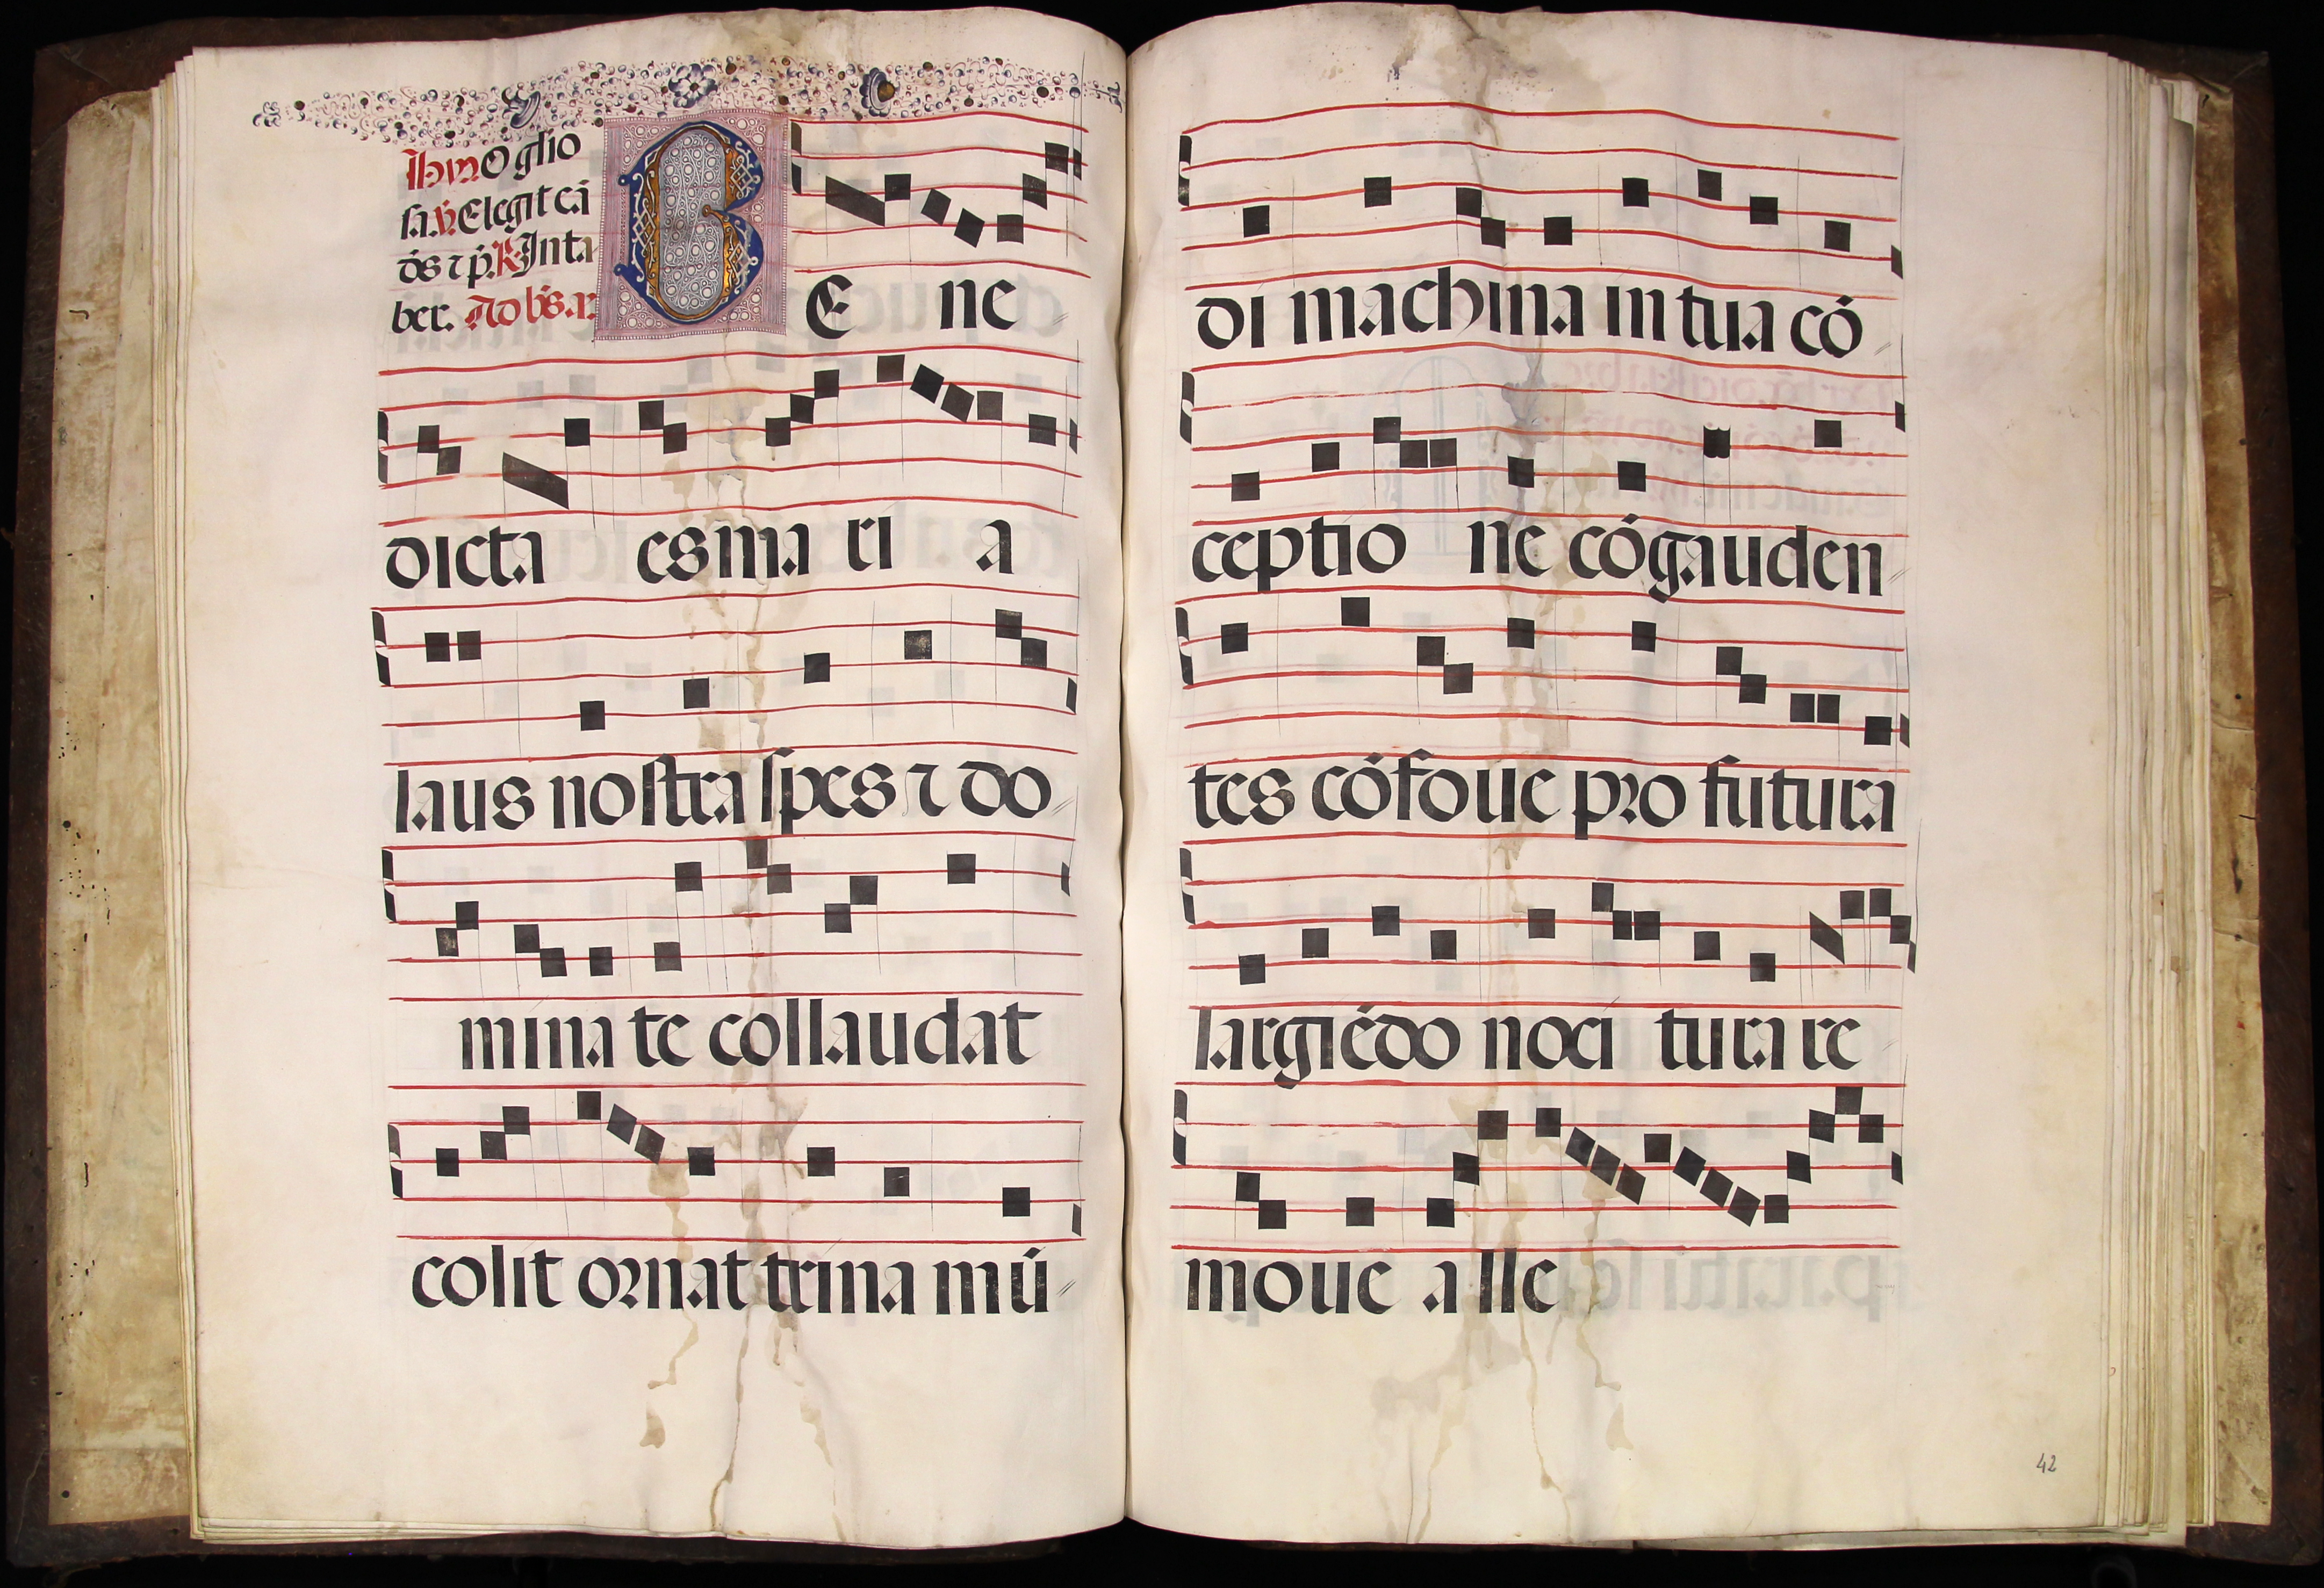 Ihm O glio
sa. v. Elegit eā
ds ⁊ p. R. In ta
ber. Ad bs. a.
BE ne
dicta es ma ri a
laus nostra spes ⁊ do
mina te collaudat
colit ornat trina mū
di machina in tua cō
ceptio ne cōgauden
tes cōfoue pro futura
largiēdo noci tura re
moue a lle
42